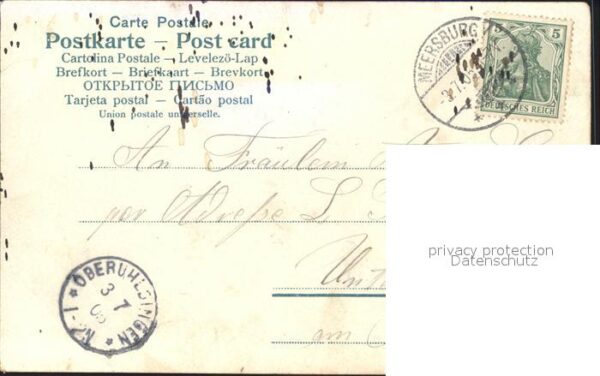 Carte Postale
Postkarte – Post card
Cartolina Postale – Levelező-Lap
Brefkort – Briefkaart – Brevkort
ОТКРЫТОЕ ПИСЬМО
Tarjeta postal – Cartão postal
Union postale universelle.
MEERSBURG
5 5
DEUTSCHES REICH
An Fräulein
per Adresse L.
am
OBERUHLDINGEN
3 7
privacy protection
Datenschutz